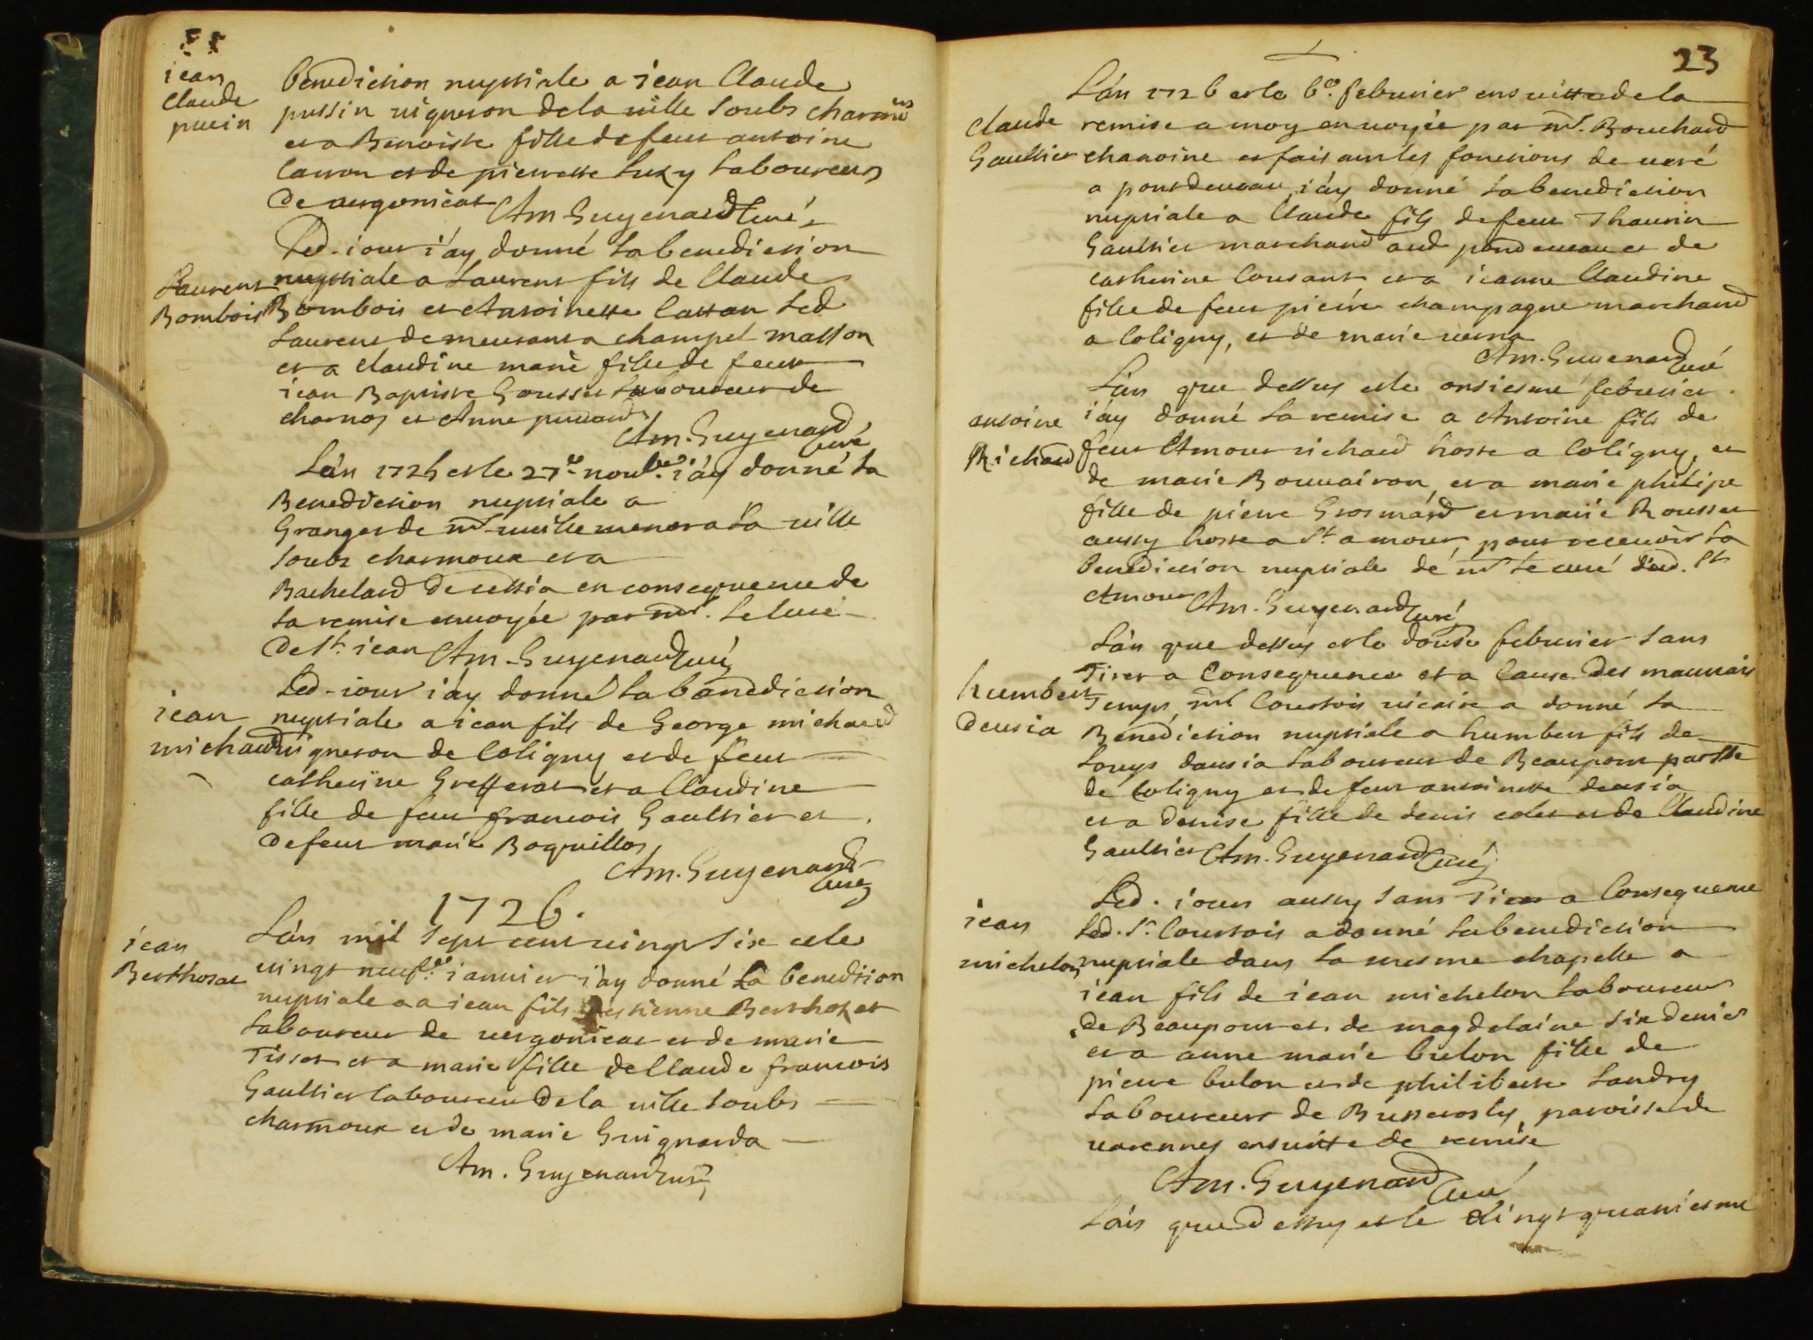 jean
Claude
puein
benediction nuptiale a jean Claude
pussin vigneron de la ville soubs charmoux
et a Benoiste fille de feux antoine
Carron et de pierrette Luxy laboureurs
de vergonicat Am Guyenard Curé
Led. jour i'ay donné la benediction
Laurent
Bombois
nuptiale a Laurent fils de Claude
Bombois et Antoinette Cattan Led
Laurent demeurant a champel masson
et a claudine marie fille de feux
jean Baptiste Gousset laboureur de
charnoz et Anne
Am. Guyenard
Curé
L'an 1725 et le 27e novbre i'ay donné la
Benediction nuptiale a
Granger de mr a la ville
soubs charmoux et a
Bachelard de cessia en consequence de
la remise envoyée par mr. le Curé
de St. jean Am. Guyenard Curé
Led. jour i'ay donné la benediction
jean
michaud
nuptiale a jean fils de George michaud
vigneron de Coligny et de feue
catherine Grefferat et a Claudine
fille de feu francois Gaultier et
de feue marie Boquillos
Am. Guyenard
Curé
1726.
jean
Berthozat
L'an mil sept cent vingt six et le
vingt neufe. janvier i'ay donné la benedition
nuptiale a a jean fils destienne Berthozet
laboureur de vergonicat et de marie
Tisset et a marie fille de Claude francois
Gaultier laboureur de la ville soubs
charmoux et de marie Guignarda
Am. Guyenard curé
23
L'an 1726 et le 6e. febvrier en suitte de la
Claude
Gaultier
remise a moy envoyée par mr. Bouchard
chanoine et faisant les fonctions de curé
a pondevaux, i'ay donné la benediction
nuptiale a Claude fils de feu Thaurin
Gaultier marchand aud pondevaux et de
catherine Cousant et a jeanne Claudine
fille de feu pierre champagne marchand
a Coligny, et de marie verna
Am. Guyenard
Curé
L'an que dessus et le onsiesme febvrier
antoine
Richard
i'ay donné la remise a Antoine fils de
feu Amour richard hoste a Coligny, et
de marie Bouvairon et a marie philipe
fille de pierre Grosmard et marie Rousset
aussy hoste a St amour, pour recevoir la
benediction nuptiale de mr le curé dud. St
Amour Am. Guyenard Curé
L'an que dessus et le douse febvrier sans
humbert
Deusia
Tirer a Consequence et a Cause des mauvais
Temps, mr Courtois vicaire a donné la
Benediction nuptiale a humbert fils de
Louys dausia laboureur de Beaupont parsse
de Coligny et de feue antoinette deusia
et a denise fille de denis colet et de Claudine
Gaultier Am. Guyenard Curé
Led. jour aussy sans Tirer a Consequence
jean
michelon
Led. Sr. Courtois a donné la benediction
nuptiale dans la mesme chapelle a
jean fils de jean michelon laboureur
de Beaupont et de magdelaine sixdenier
et a anne marie bulon fille de
pierre bulon et de philiberte Landry
laboureurs de Busserosly paroisse de
varennes en suitte de remise
Am. Guyenard
Curé
L'an que dessus et le vingt quatriesme